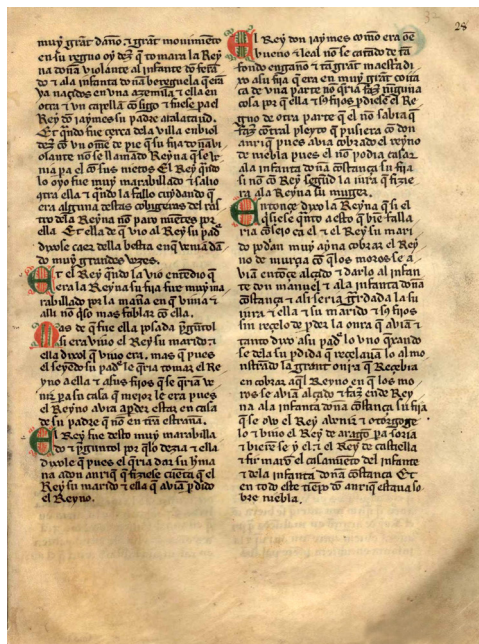 28
muy grãt daño ⁊ grãt mouimiẽto
en su regno oy dez̃ q̃ tomara la Rey
na doña violante al infante dõ ferã
do ⁊ a la infanta doña berẽguela q̃ era
ya naçidos en vna azemila ⁊ ella en
otra ⁊ vn capellã cõsigo ⁊ fuese pa el
Rey dõ jaymes su padre a calatau
Et q̃ndo fue çerca dela villa enbiol
dez̃ cõ vn ome de pie q̃ su fija doña vi
olante no se llamãdo Reyna q̃ se ve
nia pa el cõ sus nietos El Rey q̃ndo
lo oyo fue muy marabillado ⁊ salio
cõtra ella ⁊ q̃ndo la fallo cuydando q̃
era alguna destas cobigeras del ras
tro dela Reyna nõ paro mientes por
ella Et ella de q̃ vio al Rey su padr̃
dexose caer dela bestia en q̃ venia dã
do muy grandes vozes
Et el Rey q̃ndo la vio entẽdio q̃
era la Reyna su fija fue muy ma
rabillado por la manera en q̃ vinia ⁊
alli nõ q̃so mas fablar cõ ella
Mas de q̃ fue ella posada p̃gũtol
si era viuo el Rey su marido ⁊
ella dixol q̃ viuo era mas q̃ pues
el seyẽdo su padr̃ le q̃ria tomar el Re
yno a ella ⁊ a sus fijos q̃ se q̃ria ve
nir pa su casa q̃ mejor le era pues
el Reyno auia a p̃der estar en casa
de su padre q̃ nõ en tr̃a estraña
El Rey fue desto muy marabilla
do ⁊ p̃gũtol por q̃ lo dezia ⁊ ella
dixole q̃ pues el q̃ria dar su h̃ma
na a don anriq̃ q̃ fiziese cuẽta q̃ el
Rey su marido ⁊ ella q̃ auiã p̃dido
el Reyno
El Rey don jaymes como era õe
bueno ⁊ leal no se catãdo de tã
fondo engaño ⁊ tã grãt maestria
vio a su fija q̃ era en muy grãt coita
ca de vna parte no q̃ria faz̃ ninguna
cosa por q̃ ella ⁊ sꝰ fijos p̃diese el Re
gno de otra parte q̃ el nõ sabia q̃
faz̃ cõtra el pleyto q̃ pusiera cõ don
anriq̃ pues auia cobrado el reyno
de niebla pues el nõ podia casar
ala infanta doña costança su fija
si nõ cõ Rey segund la iura q̃ fizie
ra ala Reyna su muger
Entonçe dixo la Reyna q̃ si el
q̃siese q̃nto a esto q̃ biẽ falla
ria cõsejo ca el ⁊ el Rey su mari
do podian muy ayna cobrar el Rey
no de murçia cõ q̃ los moros se a
viã entõçe alçado ⁊ darlo al infan
te don manuel ⁊ ala infanta doña
costança ⁊ asi seria guardada la su
iura ⁊ ella ⁊ su marido ⁊ sꝰ fijos
sin reçelo de p̃der la onra q̃ auiã ⁊
tanto dixo a su padr̃ lo vno q̃rando
se dela su p̃dida q̃ reçelaua lo al mo
strãdo la grant onrra q̃ Reçebia
en cobrar aq̃l Reyno en q̃ los mo
ros se auiã alçado ⁊ faz̃ ende Rey
na ala infanta doña costança su fija
q̃ se ovo el Rey a venir ⁊ otorgoge
lo ⁊ vino el Rey de aragõ pa soria
⁊ vierõ se y el ⁊ el Rey de castiella
⁊ firmarõ el casamiẽto del infante
⁊ dela infanta doña costança Et
en todo este tiẽpo dõ anriq̃ estaua so
bre niebla